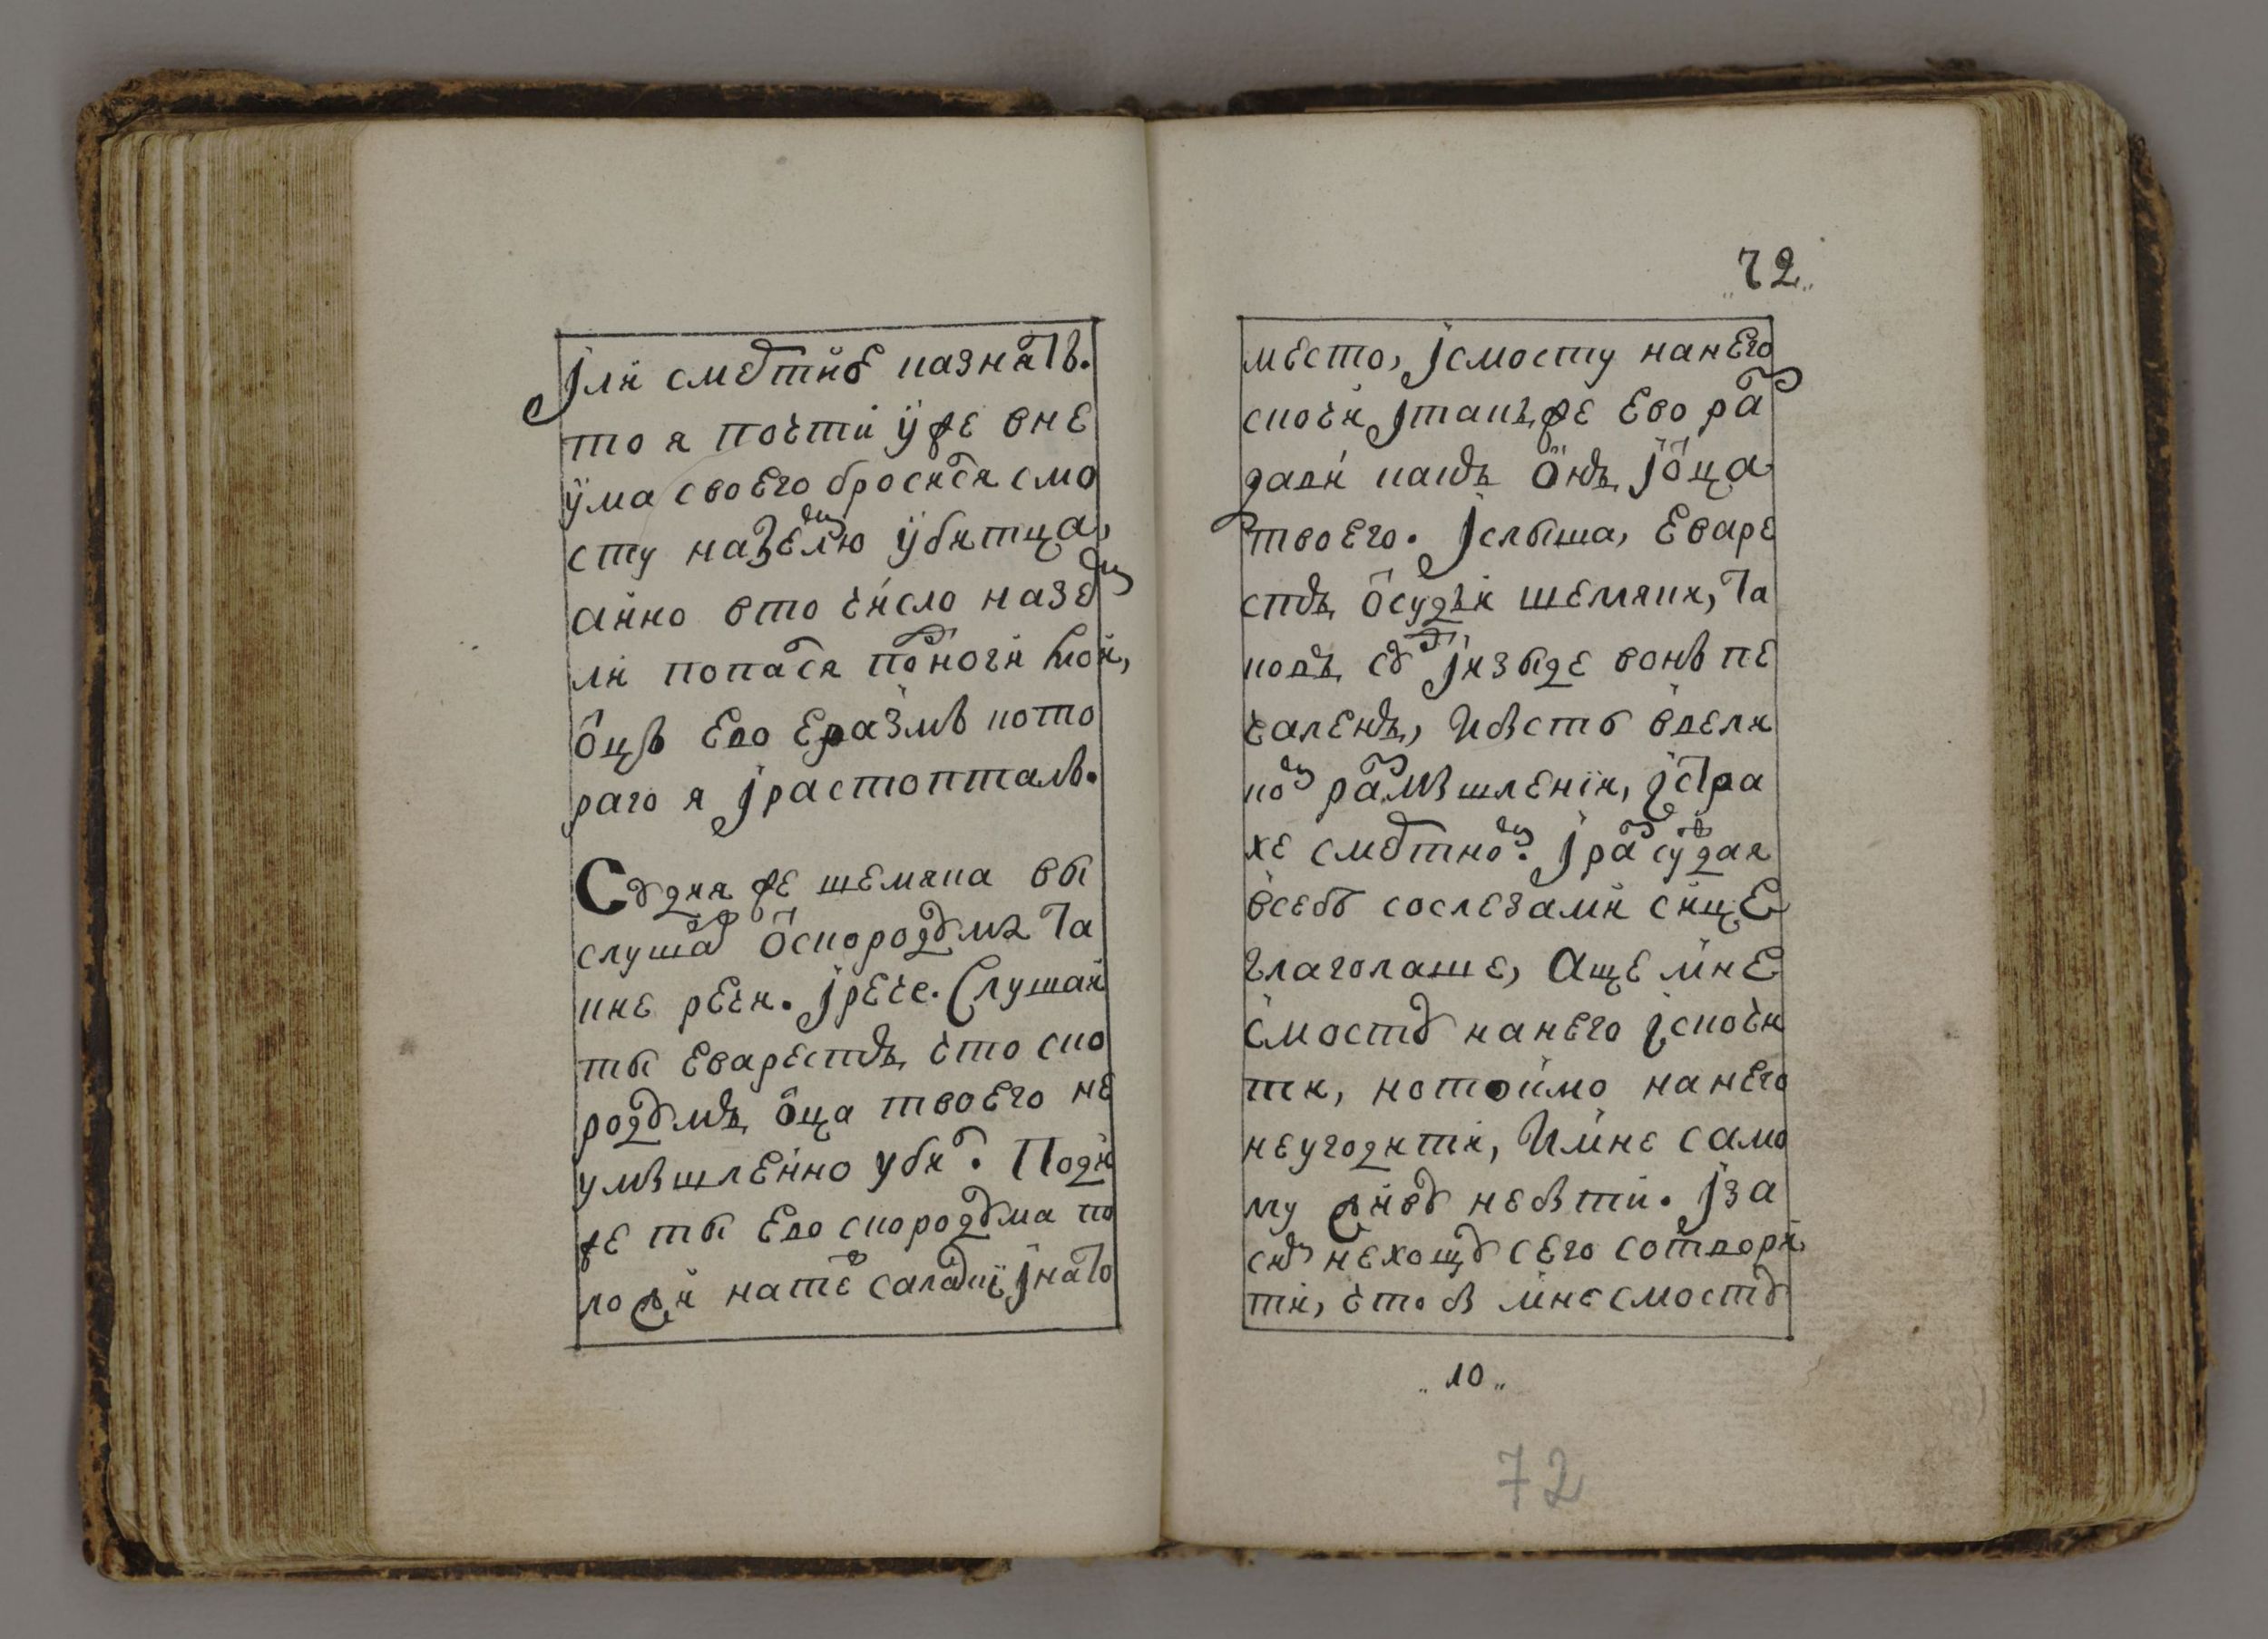 Или смертную казнать.
то я почти уже вне
ума своего бросился смо
сту на землю убитца,
анно вто число на зем
ли попался под ноги мои,
отць ево Еразмъ кото
раго я јрастопталъ.
Судия же шемяка вы
слушавъ от скородума та
кие речи. јрече. Слушай
ты Еварестъ, что ско
родумъ отца твоего не
умышленно убилъ. Поди
же ты ево скородума по
ложи на тѣ салазки јнато
72
место, јсмосту нанего
скочи јтакъ же Ево раз
дави какъ онъ јотца
твоего. јслыша, Еваре
стъ от судьи шемяки, та
ковъ судъ јизыде вонъ пе
чаленъ, и бысть вве­ли
комъ размышлении, јстра
хе смертномъ. јразсуждая
всебѣ сослезами сице
глаголаше, Аще мне
смосту нанего јскочи
ти, нотокмо нанего
неугодити, и мне само
му живу небыти. јза
симъ нехощу сего сотвори
ти, чтобы мне смосту
10
72